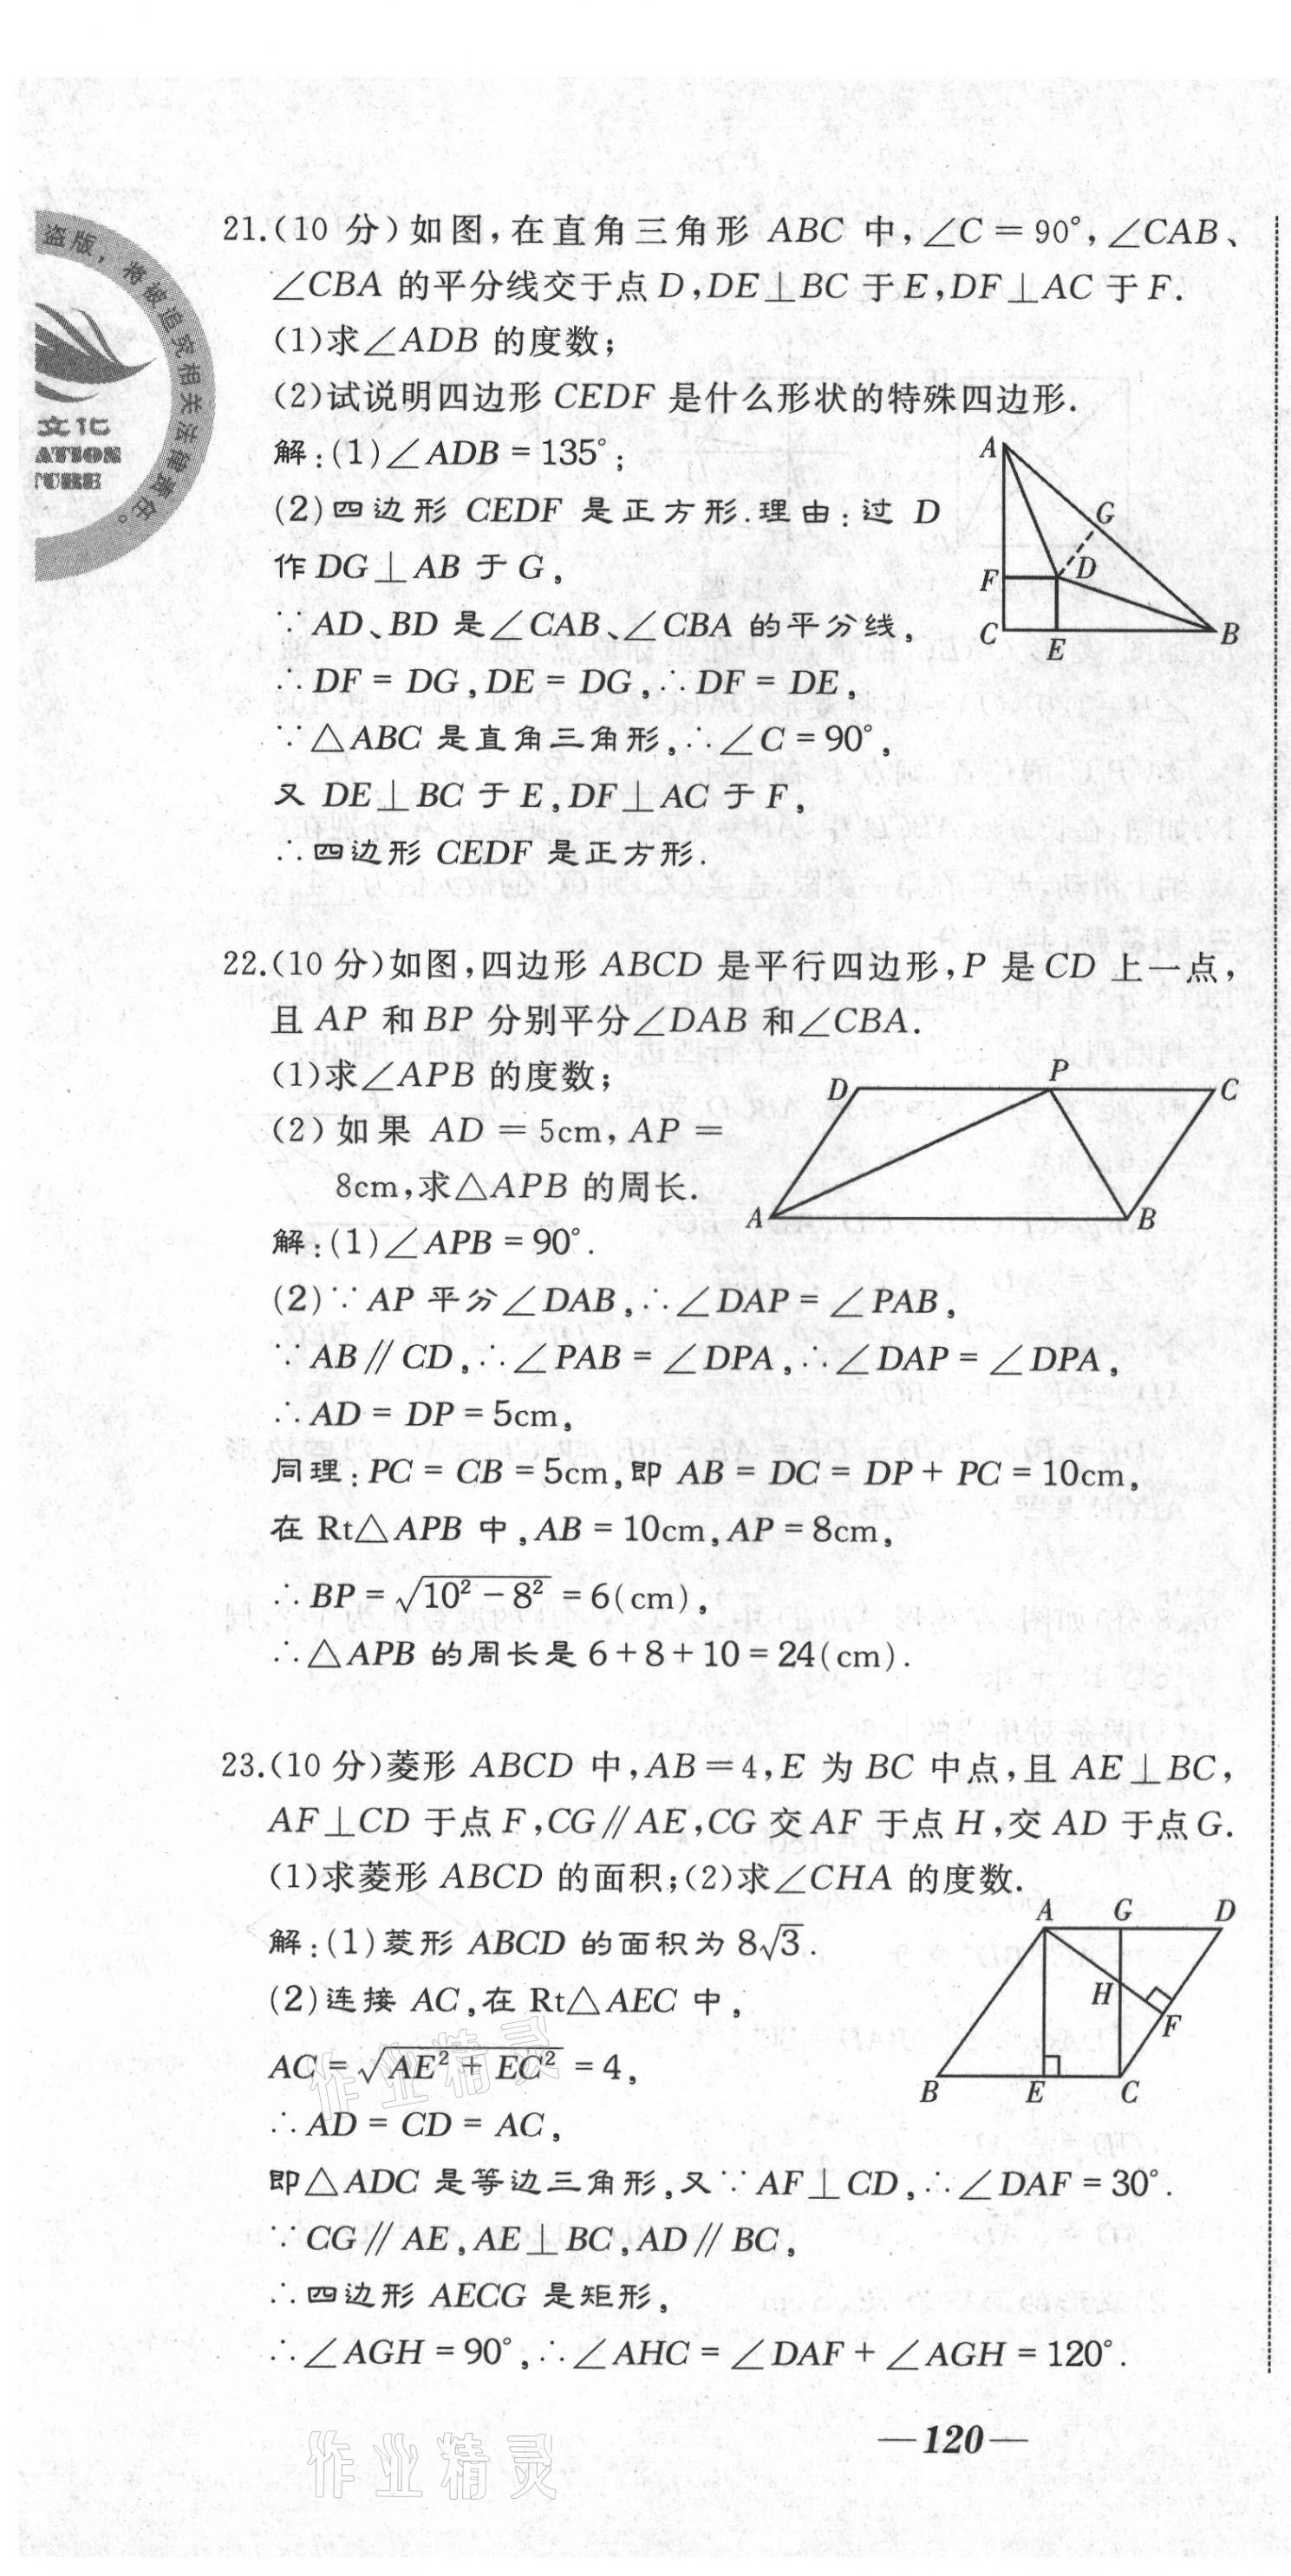 盗版，将被追究相关法律责任。
文化
ATION
TURE
21.(10 分)如图,在直角三角形 ABC 中,∠C=90°,∠CAB、
∠CBA 的平分线交于点 D,DE⊥BC 于 E,DF⊥AC 于 F.
(1)求∠ADB 的度数;
(2)试说明四边形 CEDF 是什么形状的特殊四边形.
解:(1)∠ADB=135°;
(2)四边形 CEDF 是正方形.理由:过 D
作 DG⊥AB 于 G,
∵AD、BD 是∠CAB、∠CBA 的平分线,
∴DF=DG,DE=DG,∴DF=DE,
∵△ABC 是直角三角形,∴∠C=90°,
又 DE⊥BC 于 E,DF⊥AC 于 F,
∴四边形 CEDF 是正方形.
A
G
F
D
C
E
B
22.(10 分)如图,四边形 ABCD 是平行四边形,P 是 CD 上一点,
且 AP 和 BP 分别平分∠DAB 和∠CBA.
(1)求∠APB 的度数;
(2)如果 AD=5cm,AP=
8cm,求△APB 的周长.
D
P
C
A
B
解:(1)∠APB=90°.
(2)∵AP 平分∠DAB,∴∠DAP=∠PAB,
∵AB∥CD,∴∠PAB=∠DPA,∴∠DAP=∠DPA,
∴AD=DP=5cm,
同理:PC=CB=5cm,即 AB=DC=DP+PC=10cm,
在 Rt△APB 中,AB=10cm,AP=8cm,
∴BP=√(10²-8²)=6(cm),
∴△APB 的周长是 6+8+10=24(cm).
23.(10 分)菱形 ABCD 中,AB=4,E 为 BC 中点,且 AE⊥BC,
AF⊥CD 于点 F,CG∥AE,CG 交 AF 于点 H,交 AD 于点 G.
(1)求菱形 ABCD 的面积;(2)求∠CHA 的度数.
解:(1)菱形 ABCD 的面积为 8√3.
(2)连接 AC,在 Rt△AEC 中,
AC=√(AE²+EC²)=4,
∴AD=CD=AC,
A
G
D
H
F
B
E
C
即△ADC 是等边三角形,又∵AF⊥CD,∴∠DAF=30°.
∵CG∥AE,AE⊥BC,AD∥BC,
∴四边形 AECG 是矩形,
∴∠AGH=90°,∴∠AHC=∠DAF+∠AGH=120°.
—120—
作业精灵
作业精灵